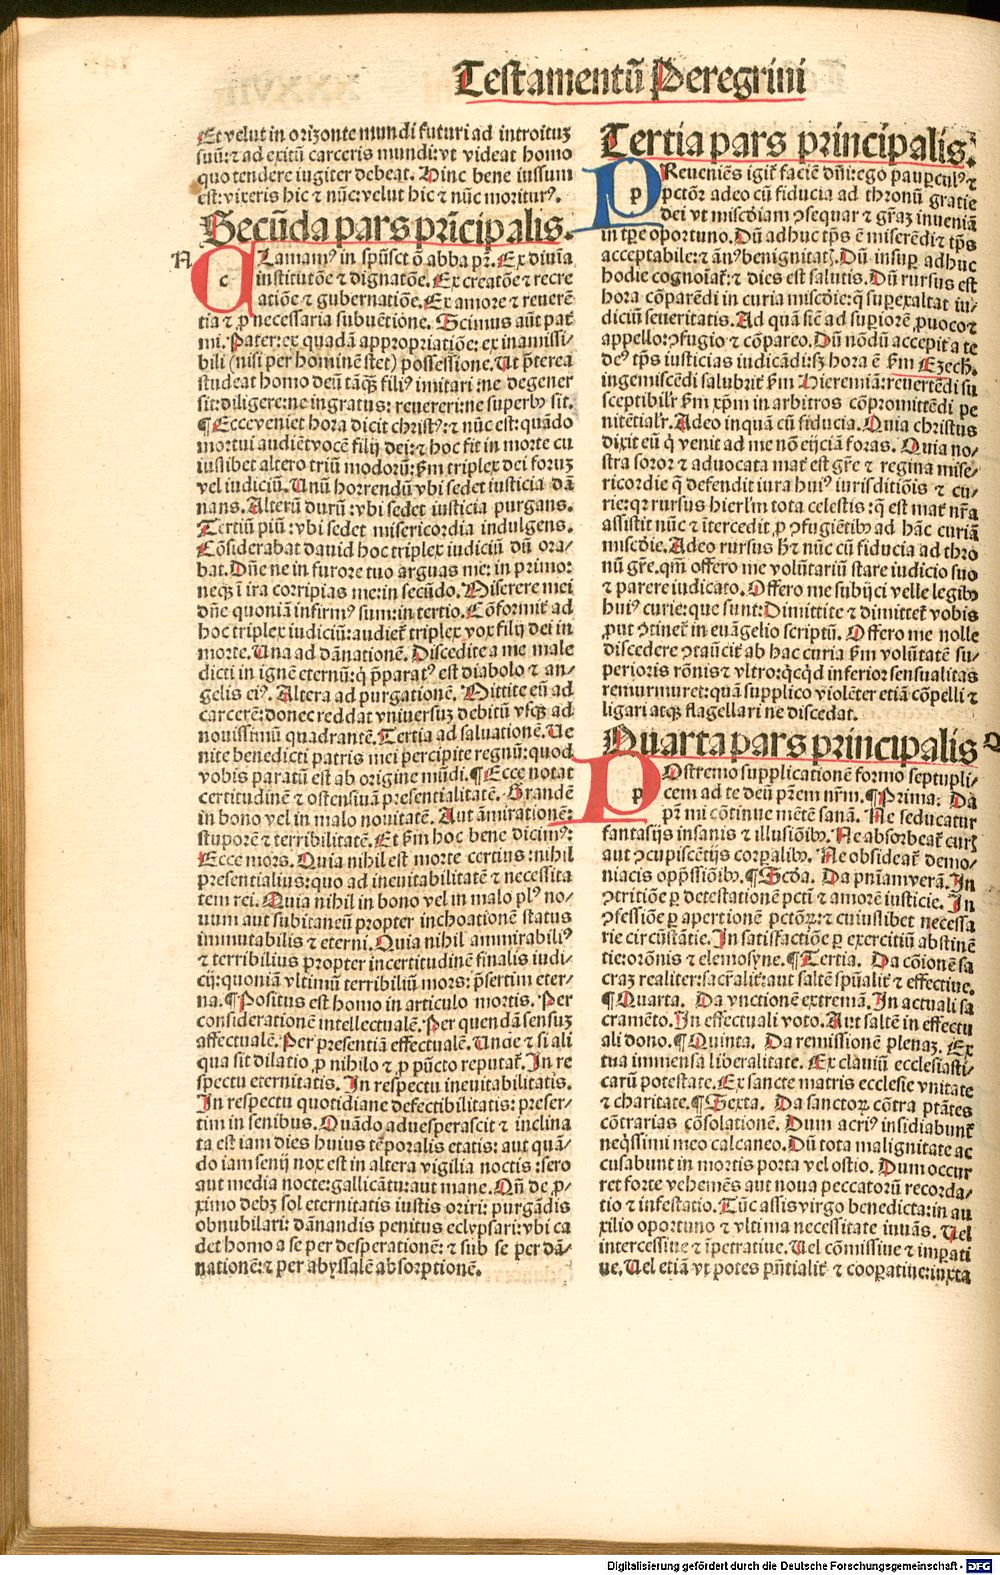 Testamentū Peregrini
Et velut in orizonte mundi futuri ad introituꝫ
suū: ⁊ ad exitū carceris mundi: vt videat homo
quo tendere iugiter debeat. Hinc bene iussum
est: vixeris hic ⁊ nūc: velut hic ⁊ nūc moriturꝰ.
Secūda pars prīcipalis.
A
CLamamꝰ in spūscto abba pr̄. Ex diuia
c
institutōe ⁊ dignatōe. Ex creatōe ⁊ recre
atiōe ⁊ gubernatiōe. Ex amore ⁊ reuerē
tia ⁊ ꝓ necessaria subuētione. Scimus aūt pat̄
mi. Pater: ex quadā appropriatiōe: ex inamissi/
bili (nisi per hominē stet) possessione. Ut p̄terea
studeat homo deū tāq̄ꝫ filiꝰ imitari: ne degener
sit: diligere: ne ingratus: reuereri: ne superbꝰ sit.
¶ Ecce veniet hora dicit christꝰ: ⁊ nūc est: quādo
mortui audiēt vocē filij dei: ⁊ hoc fit in morte cu
iuslibet altero triū modorū: ẜm triplex dei foruꝫ
vel iudiciū. Unū horrendū vbi sedet iusticia dā
nans. Alterū durū: vbi sedet iusticia purgans.
Tertiū piū: vbi sedet misericordia indulgens.
Cōsiderabat dauid hoc triplex iudiciū dū ora/
bat. Dn̄e ne in furore tuo arguas me: in primo:
neqꝫ ī ira corripias me: in secūdo. Miserere mei
dn̄e quoniā infirmꝰ sum: in tertio. Cōformit̄ ad
hoc triplex iudiciū: audiet̄ triplex vox filij dei in
morte. Una ad dānationē. Discedite a me male
dicti in ignē eternū: q̄ p̄paratꝰ est diabolo ⁊ an-
gelis eiꝰ. Altera ad purgationē. Mittite eū ad
carcerē: donec reddat vniuersuꝫ debitū vsqꝫ ad
nouissimū quadrantē. Tertia ad saluationē. Ue
nite benedicti patris mei percipite regnū: quod
vobis paratū est ab origine mūdi. ¶ Ecce notat
certitudinē ⁊ ostensiuā presentialitatē. Grandē
in bono vel in malo nouitatē. Aut āmirationē:
stuporē ⁊ terribilitatē. Et ẜm hoc bene dicimꝰ:
Ecce mors. Quia nihil est morte certius: nihil
presentialius: quo ad ineuitabilitatē ⁊ necessita
tem rei. Quia nihil in bono vel in malo plꝰ no/
uum aut subitaneū propter inchoationē status
immutabilis ⁊ eterni. Quia nihil ammirabiliꝰ
⁊ terribilius propter incertitudinē finalis iudi-
cij: quoniā vltimū terribiliū mors: p̄sertim eter-
na. ¶ Positus est homo in articulo mortis. Per
considerationē intellectualē. Per quendā sensuꝫ
affectualē. Per presentiā effectualē. Unde ⁊ si ali
qua sit dilatio ꝓ nihilo ⁊ ꝓ pūcto reputat̄. In re
spectu eternitatis. In respectu ineuitabilitatis.
In respectu quotidiane defectibilitatis: preser/
tim in senibus. Quādo aduesperascit ⁊ inclina
ta est iam dies huius tēporalis etatis: aut quā/
do iam senij nox est in altera vigilia noctis: sero
aut media nocte: gallicātu: aut mane. Qn̄ de ꝓ-
ximo debꝫ sol eternitatis iustis oriri: purgādis
obnubilari: dānandis penitus eclypsari: vbi ca
det homo a se per desperationē: ⁊ sub se per dā/
nationē: ⁊ per abyssalē absorptionē.
Tertia pars principalis.
PReueniēs igit̄ faciē dn̄i: ego paupculꝰ ⁊
p
pctōꝝ adeo cū fiducia ad thronū gratie
dei vt miscdiam ꝯsequar ⁊ gr̄aꝫ inueniā
in tp̄e oportuno. Dū adhuc tp̄s ē miserēdi ⁊ tp̄s
acceptabile: ⁊ ānꝰ benignitatꝭ. Dū insup adhuc
hodie cognoiat̄: ⁊ dies est salutis. Dū rursus est
hora cōparēdi in curia miscdie: q̄ superexaltat iu/
diciū seueritatis. Ad quā siē ad superiorē ꝓuoco ⁊
appello: ꝯfugio ⁊ cōpareo. Dū nōdū accepit a te
deꝰ tp̄s iusticias iudicādi: sꝫ hora ē ẜm Ezech.
ingemiscēdi salubrit̄ ẜm Hieremiā: reuertēdi su
sceptibilr̄ ẜm xp̄m in arbitros cōpromittēdi pe
nitētialr̄. Adeo inquā cū fiducia. Quia christus
dixit eū q̇ venit ad me nō eijciā foras. Quia no/
stra soror ⁊ aduocata mat̄ est gr̄e ⁊ regina mise/
ricordie q̄ defendit iura huiꝰ iurisditiōis ⁊ cu/
rie: qꝛ rursus hierlm̄ tota celestis: q̄ est mat̄ nr̄a
assistit nūc ⁊ ītercedit ꝓ ꝯfugiētibꝰ ad hāc curiā
miscdie. Adeo rursus hīc ⁊ nūc cū fiducia ad thro
nū gr̄e. qm̄ offero me volūtariū stare iudicio suo
⁊ parere iudicato. Offero me subijci velle legibꝰ
huiꝰ curie: que sunt: Dimittite ⁊ dimittet̄ vobis
ꝓut ꝯtinet̄ in euāgelio scriptū. Offero me nolle
discedere ꝯtaūcit̄ ab hac curia ẜm volūtatē su/
perioris rōnis ⁊ vltro: q̇cq̇d inferior sensualitas
remurmuret: quā supplico violēter etiā cōpelli ⁊
ligari atqꝫ flagellari ne discedat.
Quarta pars principalis
Q
POstremo supplicationē formo septupli/
p
cem ad te deū pr̄em nr̄m. ¶ Prima: Da
pr̄ mi cōtinue mētē sanā. Ne seducatur
fantasijs insanis ⁊ illusiōibꝰ. Ne absorbeat̄ curꝭ
aut ꝯcupiscētijs corpalibꝰ. Ne obsideat̄ demo/
niacis opp̄ssiōibꝰ. ¶ Scd̄a. Da pn̄iam verā. In
ꝯtritiōe ꝑ detestationē pcti ⁊ amorē iusticie. In
ꝯfessiōe ꝑ apertionē pctōꝝ: ⁊ cuiuslibet necessa
rie circūstātie. In satisfactiōe ꝑ exercitiū abstinē
tie: orōnis ⁊ elemosyne. ¶ Tertia. Da cōionē sa
craꝫ realiter: sacr̄alit̄: aut saltē sp̄ūalit̄ ⁊ effectiue.
¶ Quarta. Da vnctionē extremā. In actuali sa
cramēto. In effectuali voto. Aut saltē in effectu
ali dono. ¶ Quinta. Da remissionē plenaꝫ. Ex
tua immensa liberalitate. Ex clauiū ecclesiasti/
carū potestate. Ex sancte matris ecclesie vnitate
⁊ charitate. ¶ Sexta. Da sanctoꝝ cōtra ptātes
cōtrarias cōsolationē. Dum acriꝰ insidiabunt̄
neq̇ssimi meo calcaneo. Dū tota malignitate ac
cusabunt in mortis porta vel ostio. Dum occur
ret forte vehemēs aut noua peccatorū recorda/
tio ⁊ infestatio. Tūc assis virgo benedicta: in au
xilio oportuno ⁊ vltima necessitate inuās. Uel
intercessiue ⁊ īpetratiue. Uel cōmissiue ⁊ imperati
ue. Uel etiā vt potes pn̄tialit̄ ⁊ coopatiue: iuxta
Digitalisierung gefördert durch die Deutsche Forschungsgemeinschaft - DFG